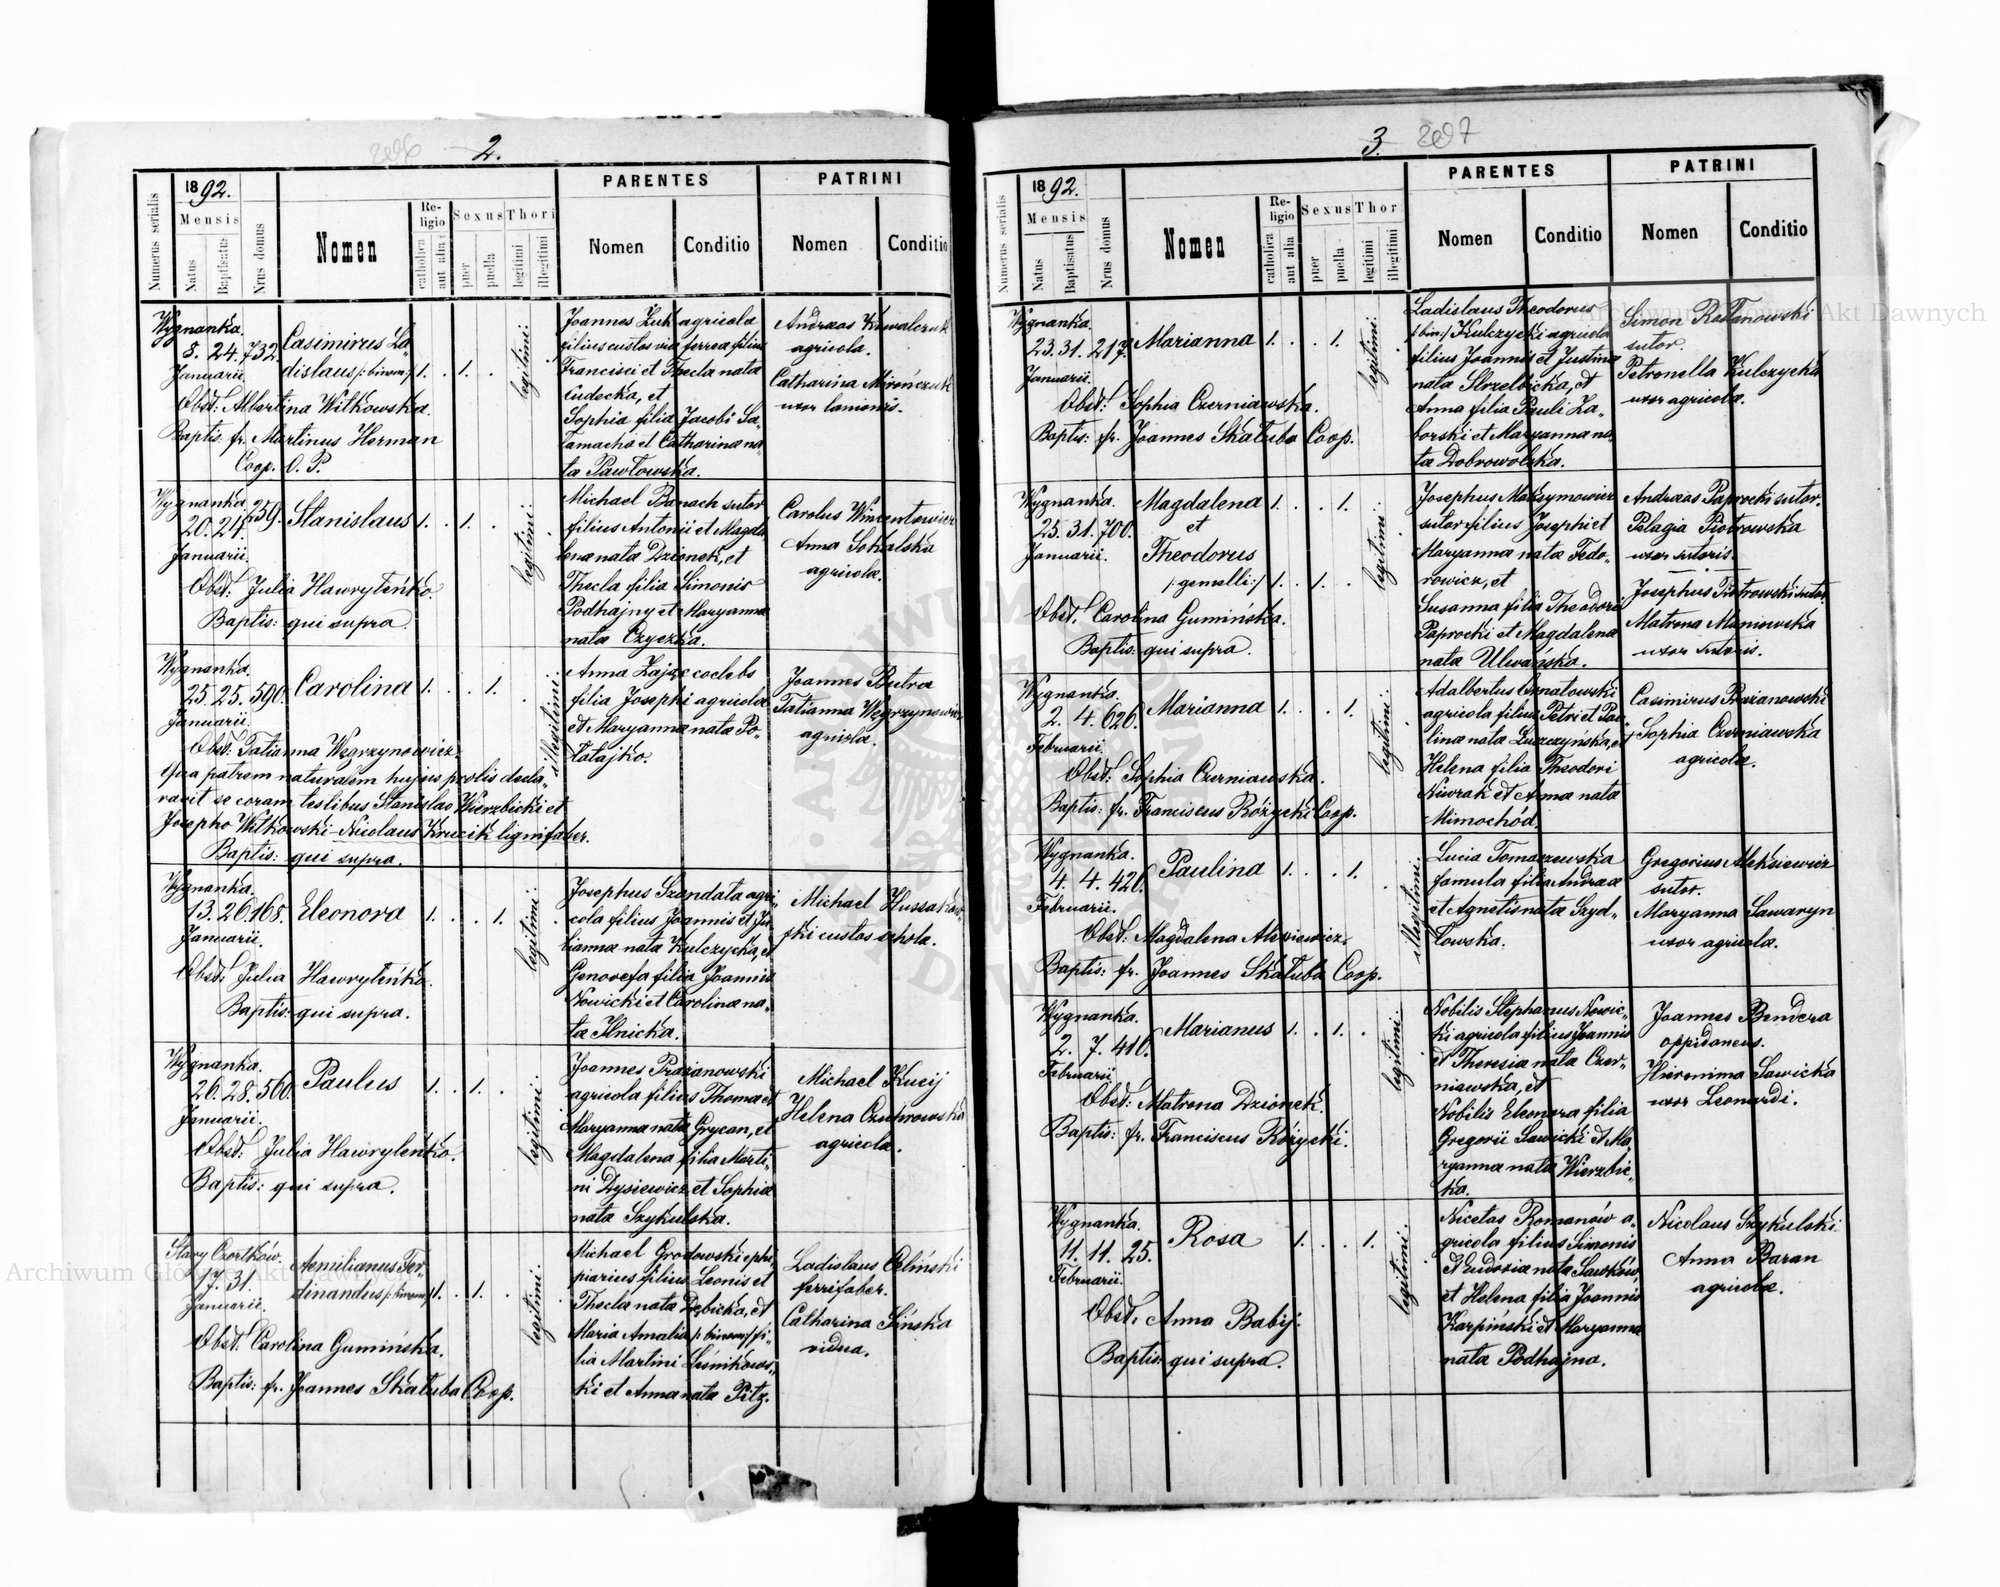 2.
1892.
Numerus serialis
Mensis
Natus
Baptisatus
Nrus domus
Nomen
Religio
catholica
aut alia
Sexus
puer
puella
Thori
legitimi
illegitimi
PARENTES
Nomen
Conditio
PATRINI
Nomen
Conditio
Wygnanka.
8. 24. 732.
Januarii.
Casimirus La-
dislaus /:binom:/
1. . 1. .
legitimi:
Obst: Albertina Witkowska.
Baptis. fr. Martinus Herman
Coop. O. P.
Joannes Żuk agricola
filius custos viæ ferreæ filius
Francisci et Theclæ natæ
Cudecka, et
Sophia filia Jacobi Sa-
lamacha et Catharinæ na-
tæ Pawłowska.
Andreas Kowalczuk
agricola.
Catharina Mirończuk
uxor lanionis.
Wygnanka.
20. 24. 259.
Januarii.
Stanislaus
1. . 1. .
legitimi:
Obst: Julia Hawryleńko.
Baptis: qui supra.
Michael Banach sutor
filius Antonii et Magda
lenæ natæ Dzionek, et
Thecla filia Simonis
Podhajny et Maryannæ
natæ Czyczka.
Carolus Wincentowicz
Anna Sokalska
agricolæ.
Wygnanka.
25. 25. 590.
Januarii.
Carolina
1. . . 1. .
illegitimi:
Obst: Tatianna Węgrzynowicz.
Qua patrem naturalem hujus prolis decla-
ravit se coram testibus Stanislao Wierzbicki et
Josepho Witkowski - Nicolaus Kruczik lignifaber.
Baptis: qui supra.
Anna Zając coelebs
filia Josephi agricolæ
et Maryannæ natæ Po-
tatajko.
Joannes Butra
Tatianna Węgrzynowicz
agricolæ.
Wygnanka.
13. 26. 168.
Januarii.
Eleonora
1. . . 1.
legitimi:
Obst: Julia Hawryleńko.
Baptis: qui supra.
Josephus Szandała agri-
cola filius Joannis et Ju-
liannæ natæ Kulczycka, et
Genovefa filia Joannis
Nowicki et Carolinæ na-
tæ Ilnicka.
Michael Hussakow-
ski custos scholæ.
Wygnanka.
26. 28. 560.
Januarii.
Paulus
1. . 1. .
legitimi:
Obst: Julia Hawryleńko.
Baptis: qui supra.
Joannes Prażanowski
agricola filius Thomæ et
Maryannæ natæ Grycan, et
Magdalena filia Marti-
ni Dysiewicz et Sophiæ
natæ Szykulska.
Michael Kucij
Helena Czubrowska
agricolæ.
Stary Czortków.
17. 31.
Januarii.
Aemilianus Fer-
dinandus /:binom:/
1. . 1. .
legitimi:
Obst. Carolina Gumińska.
Baptis: fr. Joannes Skałuba Coop.
Michael Grodowski ephi-
piarius filius Leonis et
Theclæ natæ Dębicka, et
Maria Amalia /:binom:/ fi-
lia Martini Leśnikows-
ki et Annæ natæ Pitz.
Ladislaus Celiński
ferrifaber.
Catharina Sińska
vidua.
3.
1892.
Numerus serialis
Mensis
Natus
Baptisatus
Nrus domus
Nomen
Religio
catholica
aut alia
Sexus
puer
puella
Thor
legitimi
illegitimi
PARENTES
Nomen
Conditio
PATRINI
Nomen
Conditio
Wygnanka.
23. 31. 217.
Januarii.
Marianna
1. . . 1.
legitimi:
Obst: Sophia Czerniawska.
Baptis: fr. Joannes Skałuba Coop.
Ladislaus Theodorus
/:bin:/ Kulczycki agricola
filius Joannis et Justinæ
natæ Strzelbicka, et
Anna filia Pauli Za-
borski et Maryannæ na-
tæ Dobrowolska.
Simon Romanowski
sutor.
Petronella Kulczycka
uxor agricolæ.
Wygnanka.
25. 31. 700.
Januarii.
Magdalena
et
Theodorus
/:gemelli:/
1. . . 1.
1. . 1. .
legitimi:
Obst. Carolina Gumińska.
Baptis: qui supra.
Josephus Maksymowicz
sutor filius Josephi et
Maryannæ natæ Fedo-
rowicz, et
Susanna filia Theodori
Paprocki et Magdalenæ
natæ Ulwańska.
Andreas Paprocki sutor.
Pelagia Piotrowska
uxor sutoris.
Josephus Piotrowski sutor.
Matrona Maniowska
uxor sutoris.
Wygnanka.
2. 4. 626.
Februarii.
Marianna
1. . . 1.
legitimi:
Obst: Sophia Czerniawska.
Baptis: fr. Franciscus Różycki Coop.
Adalbertus Ornatowski
agricola filius Petri et Pau-
linæ natæ Luszczyńska, et
Helena filia Theodori
Niwrak et Annæ natæ
Mimochód.
Casimirus Prażanowski
Sophia Czerniawska
agricolæ.
Wygnanka.
4. 4. 420.
Februarii.
Paulina
1. . . 1.
illegitimi:
Obst: Magdalena Alexiewicz.
Baptis: fr. Joannes Skałuba Coop.
Lucia Tomaszewska
famula filia Andreæ
et Agnetis natæ Szyd-
łowska.
Gregorius Aleksiewicz
sutor.
Maryanna Sawaryn
uxor agricolæ.
Wygnanka.
2. 7. 410.
Februarii
Marianus
1. . 1. .
legitimi:
Obst: Matrona Dzionek.
Baptis: fr. Franciscus Różycki.
Nobilis Stephanus Nowic-
ki agricola filius Joannis
et Theresiæ natæ Czer-
niawska, et
Nobilis Eleonora filia
Gregorii Sawicki et Ma-
ryannæ natæ Wierzbic-
ka.
Joannes Bendera
oppidaneus.
Hieronima Sawicka
uxor Leonardi.
Wygnanka.
11. 11. 25.
Februarii.
Rosa
1. . . 1.
legitimi:
Obst. Anna Babij.
Baptis: qui supra.
Nicetas Romanów a-
gricola filius Simonis
et Eudoxiæ natæ Sawków,
et Helena filia Joannis
Karpiński et Maryannæ
natæ Podhajna.
Nicolaus Szykulski
Anna Baran
agricolæ.
Archiwum Główne Akt Dawnych
Archiwum Główne Akt Dawnych